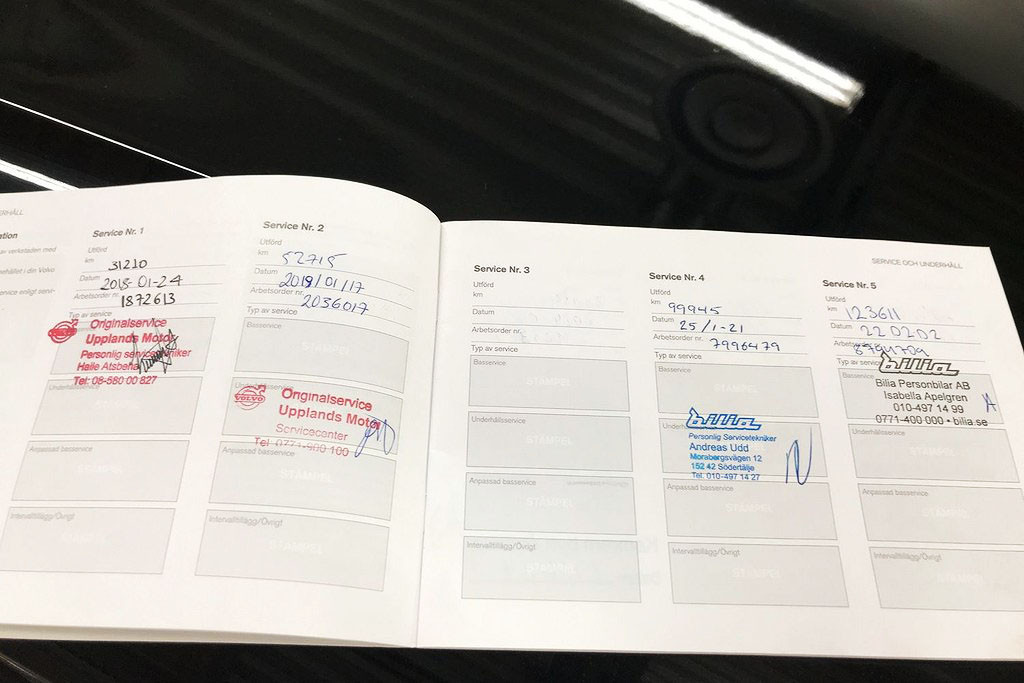 SERVICE OCH UNDERHÅLL
Service Nr. 1
Utförd
km 31210
Datum 2018-01-24
Arbetsorder nr. 1872613
Typ av service
Originalservice
Upplands Motor
Personlig servicetekniker
Tel: 08-580 00 827
Underhållsservice
STÄMPEL
Anpassad basservice
STÄMPEL
Intervalltillägg/Övrigt
STÄMPEL
Service Nr. 2
Utförd
km 52715
Datum 2019/01/17
Arbetsorder nr. 2036017
Typ av service
Basservice
STÄMPEL
VOLVO
Originalservice
Upplands Motor
Servicecenter
Tel 0771-900 100
Anpassad basservice
STÄMPEL
Intervalltillägg/Övrigt
STÄMPEL
Service Nr. 3
Utförd
km
Datum
Arbetsorder nr.
Typ av service
Basservice
STÄMPEL
Underhållsservice
STÄMPEL
Anpassad basservice
STÄMPEL
Intervalltillägg/Övrigt
STÄMPEL
Service Nr. 4
Utförd
km 99945
Datum 25/1-21
Arbetsorder nr. 7996479
Typ av service
Basservice
STÄMPEL
bilia
Personlig Servicetekniker
Andreas Udd
Morabergsvägen 12
152 42 Södertälje
Tel. 010-497 14 27
Anpassad basservice
STÄMPEL
Intervalltillägg/Övrigt
STÄMPEL
Service Nr. 5
Utförd
km 123611
Datum 220202
Typ av service
Basservice
bilia
Bilia Personbilar AB
Isabella Apelgren
010-497 14 99
0771-400 000 • bilia.se
Underhållsservice
STÄMPEL
Anpassad basservice
STÄMPEL
Intervalltillägg/Övrigt
STÄMPEL